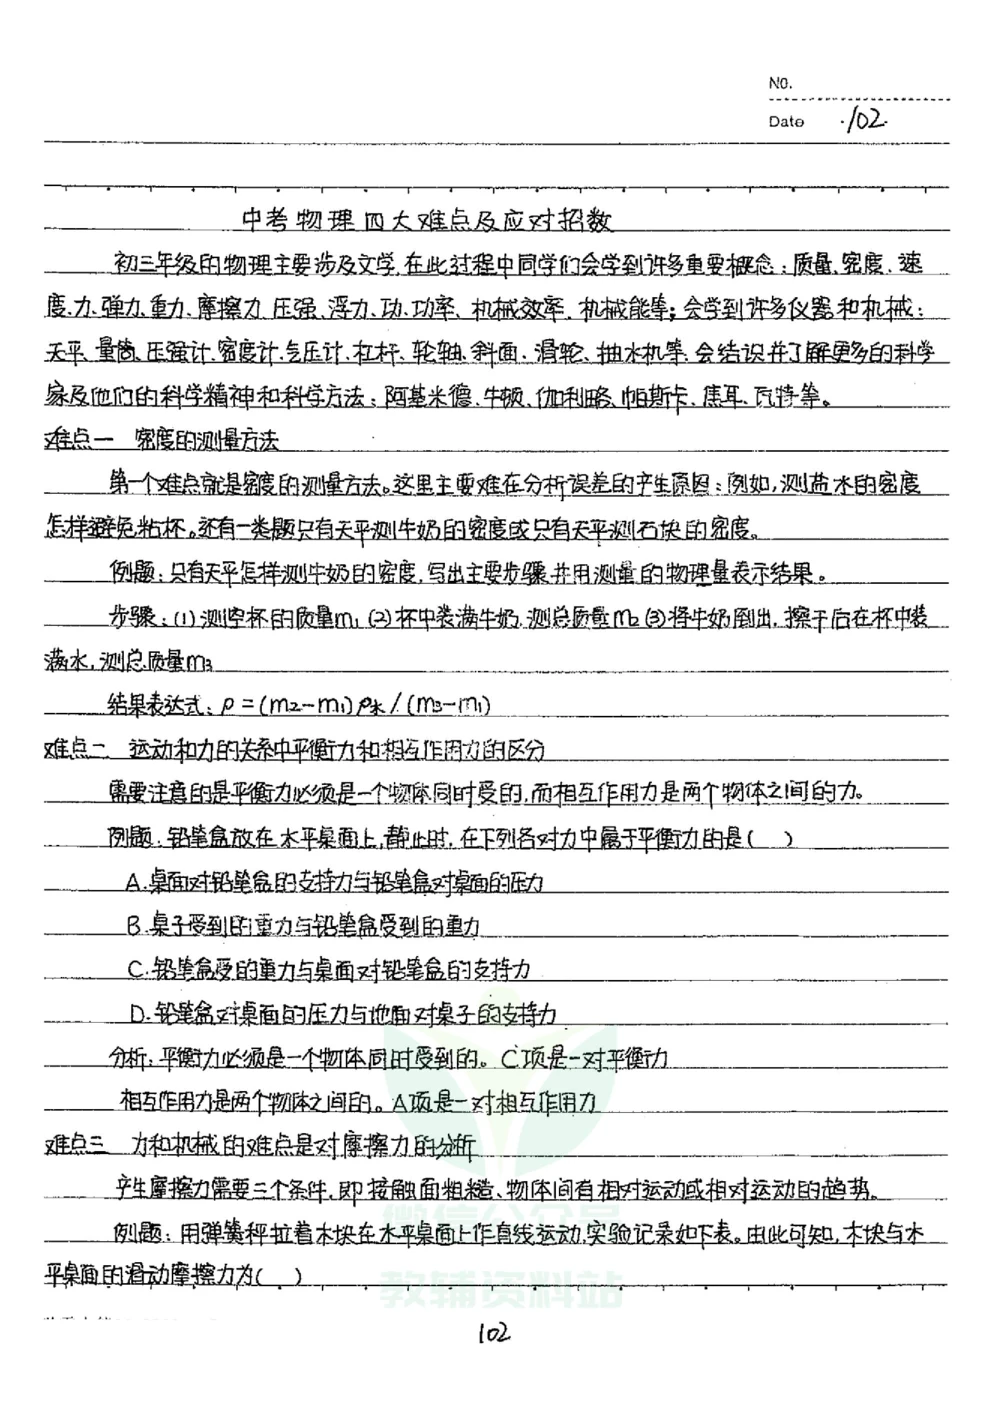 No.
Date 102
中考物理四大难点及应对招数
初三年级的物理主要涉及文学,在此过程中同学们会学到许多重要概念:质量、密度、速
度、力、弹力、重力、摩擦力、压强、浮力、功、功率、机械效率、机械能等;会学到许多仪器和机械:
天平、量筒、压强计、密度计、气压计、杠杆、轮轴、斜面、滑轮、抽水机等,会结识并了解更多的科学
家及他们的科学精神和科学方法:阿基米德、牛顿、伽利略、帕斯卡、焦耳、瓦特等。
难点一 密度的测量方法
第一个难点就是密度的测量方法。这里主要难在分析误差的产生原因:例如,测盐水的密度
怎样避免粘杯。还有一类题只有天平测牛奶的密度或只有天平测石块的密度。
例题:只有天平怎样测牛奶的密度,写出主要步骤并用测量的物理量表示结果。
步骤:(1)测空杯的质量m₁ (2)杯中装满牛奶,测总质量m₂ (3)将牛奶倒出,擦干后在杯中装
满水,测总质量m₃
结果表达式:ρ=(m₂-m₁)ρ水/(m₃-m₁)
难点二 运动和力的关系中平衡力和相互作用力的区分
需要注意的是平衡力必须是一个物体同时受的,而相互作用力是两个物体之间的力。
例题:铅笔盒放在水平桌面上,静止时,在下列各对力中属于平衡力的是( )
A.桌面对铅笔盒的支持力与铅笔盒对桌面的压力
B.桌子受到的重力与铅笔盒受到的重力
C.铅笔盒受的重力与桌面对铅笔盒的支持力
D.铅笔盒对桌面的压力与地面对桌子的支持力
分析:平衡力必须是一个物体同时受到的。C项是一对平衡力
相互作用力是两个物体之间的。A项是一对相互作用力
难点三 力和机械的难点是对摩擦力的分析
产生摩擦力需要三个条件,即接触面粗糙、物体间有相对运动或相对运动的趋势。
微信公众号
例题:用弹簧秤拉着木块在水平桌面上作直线运动,实验记录如下表。由此可知,木块与水
平桌面的滑动摩擦力为( )
教辅资料站
102